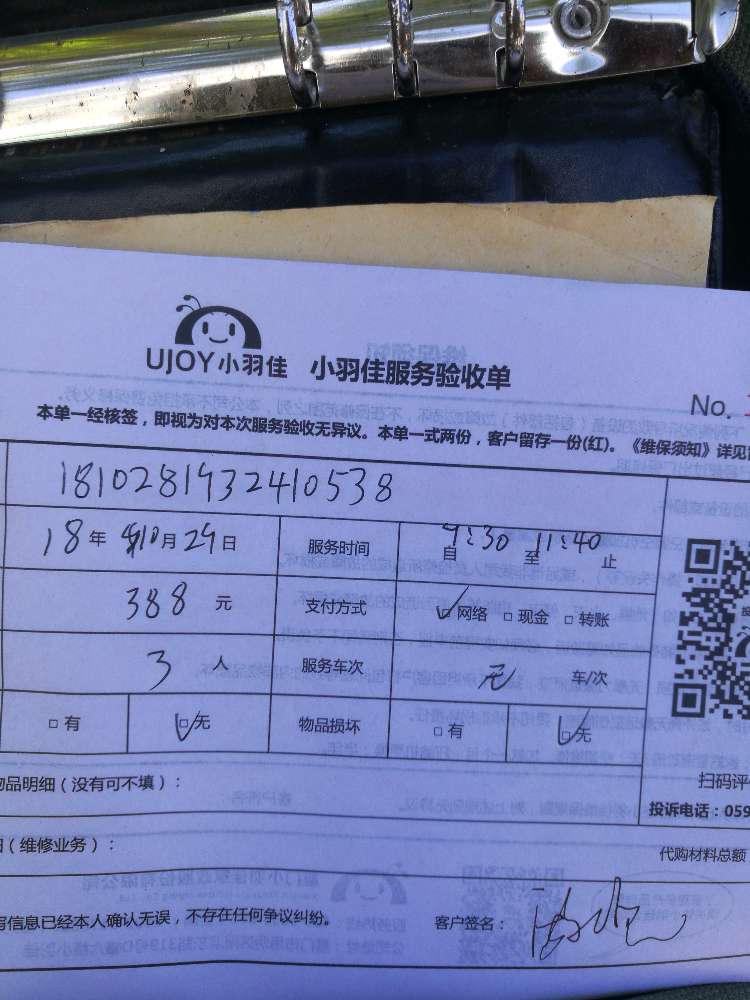 UJOY小羽佳 小羽佳服务验收单
No.
本单一经核签，即视为对本次服务验收无异议。本单一式两份，客户留存一份(红)。《维保须知》详见
1810281932410538
18年10月29日 服务时间 自9:30至11:40止
388元 支付方式 网络 现金 转账
3人 服务车次 无 车/次
有 无 物品损坏 有 无
品明细（没有可不填）：
扫码评
投诉电话：059
（维修业务）：
代购材料总额
写信息已经本人确认无误，不存在任何争议纠纷。 客户签名：